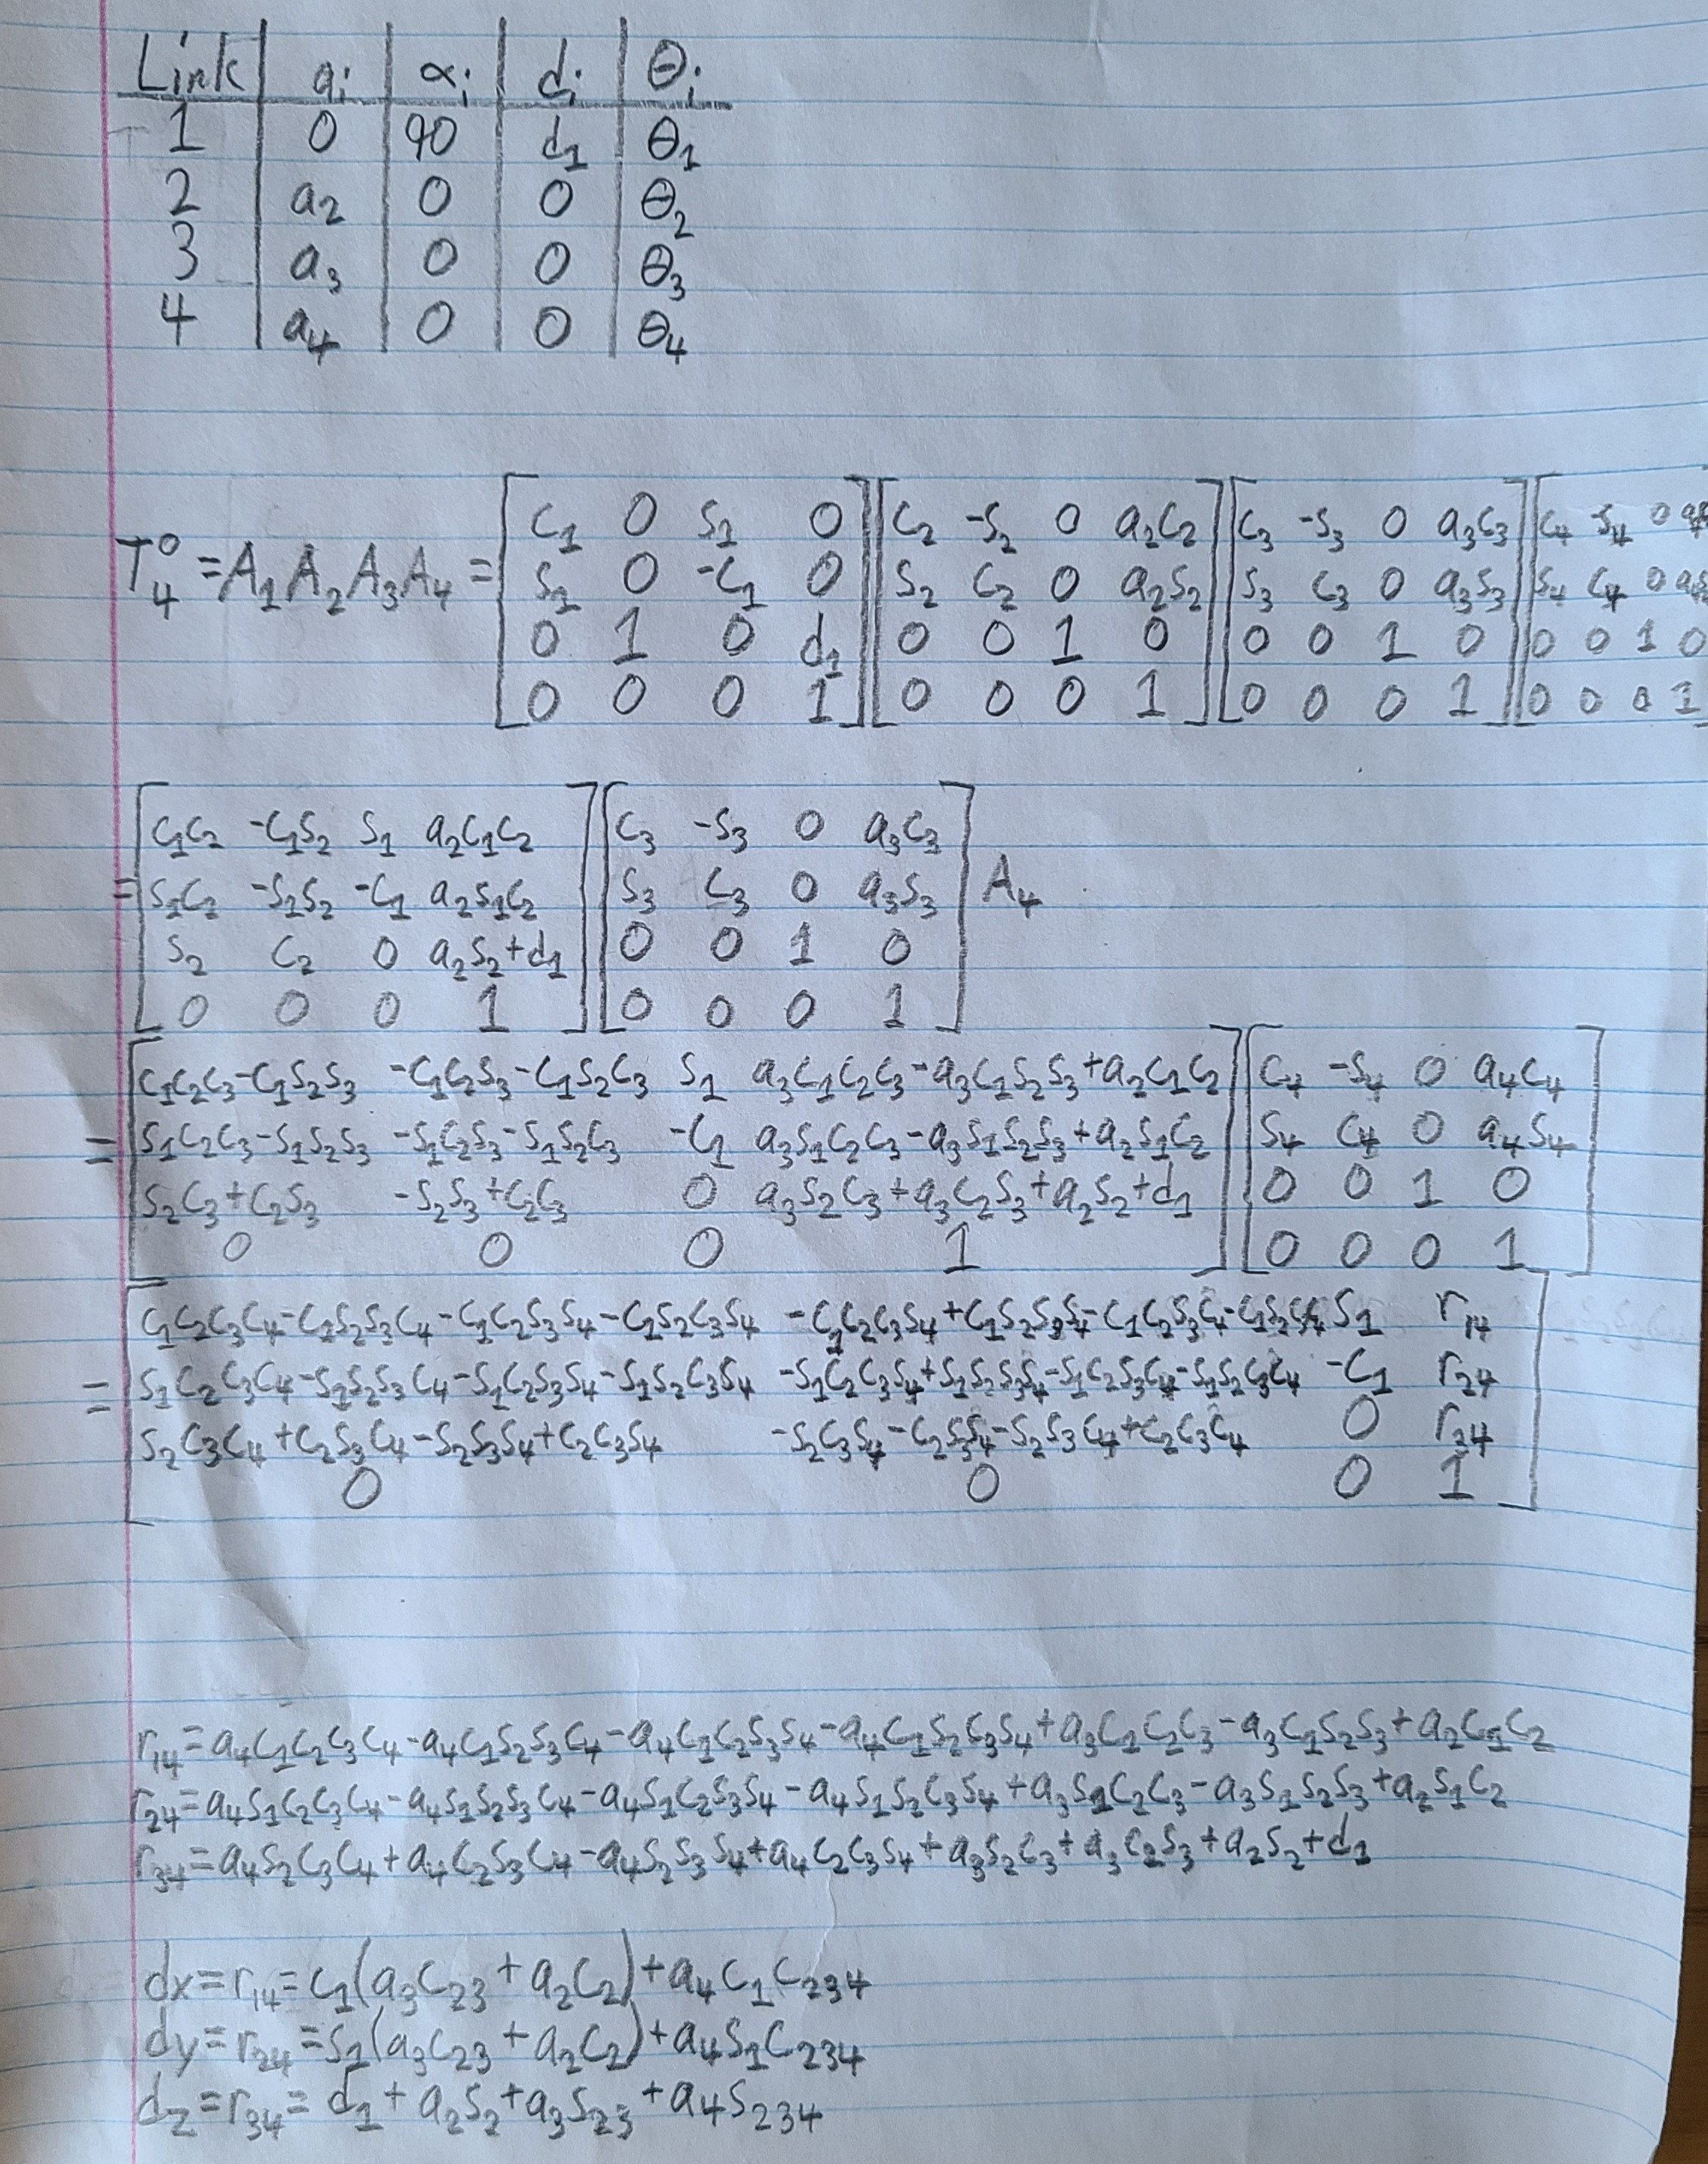 Link | ai | αi | di | θi
1 | 0 | 90 | d1 | θ1
2 | a2 | 0 | 0 | θ2
3 | a3 | 0 | 0 | θ3
4 | a4 | 0 | 0 | θ4
T⁰₄ = A1 A2 A3 A4 = [C1 0 S1 0] [C2 -S2 0 a2C2] [C3 -S3 0 a3C3] [C4 -S4 0
[S1 0 -C1 0] [S2 C2 0 a2S2] [S3 C3 0 a3S3] [S4 C4 0
[0 1 0 d1] [0 0 1 0] [0 0 1 0] [0 0 1 0
[0 0 0 1] [0 0 0 1] [0 0 0 1] [0 0 0 1
= [C1C2 -C1S2 S1 a2C1C2] [C3 -S3 0 a3C3] A4
[S1C2 -S1S2 -C1 a2S1C2] [S3 C3 0 a3S3]
[S2 C2 0 a2S2+d1] [0 0 1 0]
[0 0 0 1] [0 0 0 1]
= [C1C2C3-C1S2S3 -C1C2S3-C1S2C3 S1 a3C1C2C3-a3C1S2S3+a2C1C2] [C4 -S4 0 a4C4]
[S1C2C3-S1S2S3 -S1C2S3-S1S2C3 -C1 a3S1C2C3-a3S1S2S3+a2S1C2] [S4 C4 0 a4S4]
[S2C3+C2S3 -S2S3+C2C3 0 a3S2C3+a3C2S3+a2S2+d1] [0 0 1 0]
[0 0 0 1] [0 0 0 1]
= [C1C2C3C4-C1S2S3C4-C1C2S3S4-C1S2C3S4 -C1C2C3S4+C1S2S3S4-C1C2S3C4-C1S2C3C4 S1 r14]
[S1C2C3C4-S1S2S3C4-S1C2S3S4-S1S2C3S4 -S1C2C3S4+S1S2S3S4-S1C2S3C4-S1S2C3C4 -C1 r24]
[S2C3C4+C2S3C4-S2S3S4+C2C3S4 -S2C3S4-C2S3S4-S2S3C4+C2C3C4 0 r34]
[0 0 0 1]
r14=a4C1C2C3C4-a4C1S2S3C4-a4C1C2S3S4-a4C1S2C3S4+a3C1C2C3-a3C1S2S3+a2C1C2
r24=a4S1C2C3C4-a4S1S2S3C4-a4S1C2S3S4-a4S1S2C3S4+a3S1C2C3-a3S1S2S3+a2S1C2
r34=a4S2C3C4+a4C2S3C4-a4S2S3S4+a4C2C3S4+a3S2C3+a3C2S3+a2S2+d1
dx=r14=C1(a3C23+a2C2)+a4C1C234
dy=r24=S1(a3C23+a2C2)+a4S1C234
dz=r34=d1+a2S2+a3S23+a4S234